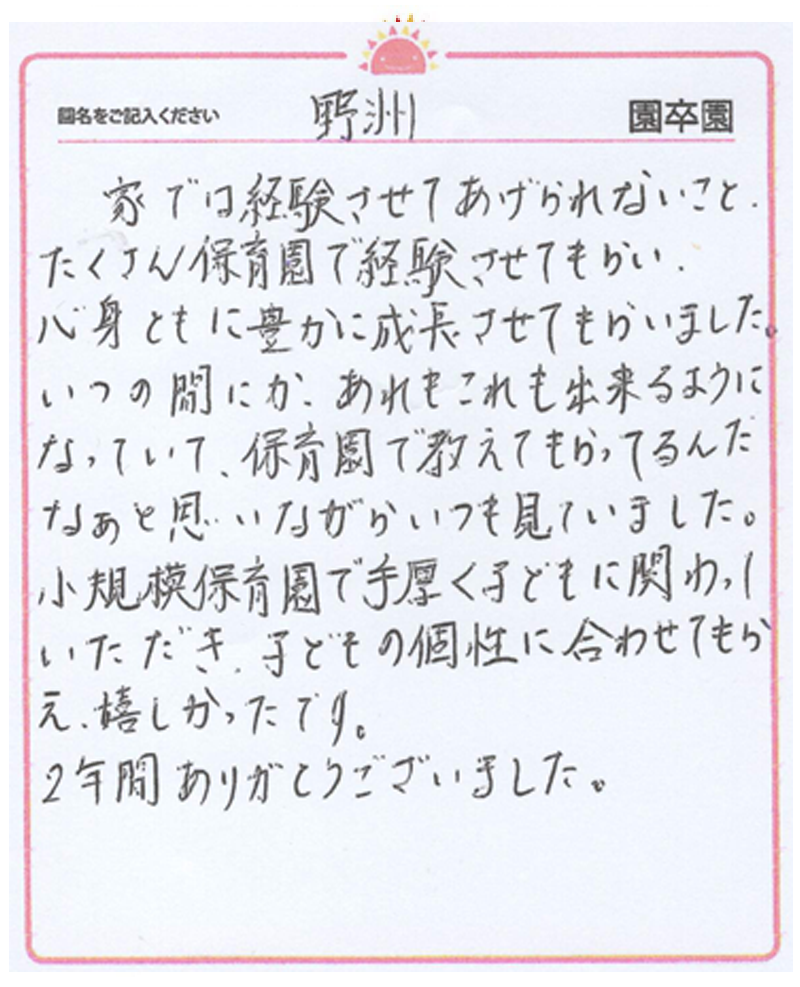 園名をご記入ください 野洲 園卒園
家では経験させてあげられないこと、
たくさん保育園で経験させてもらい、
心身ともに豊かに成長させてもらいました。
いつの間にか、あれもこれも出来るように
なっていて、保育園で教えてもらってるんだ
なぁと思いながらいつも見ていました。
小規模保育園で手厚く子どもに関わって
いただき、子どもの個性に合わせてもら
え、嬉しかったです。
2年間ありがとうございました。